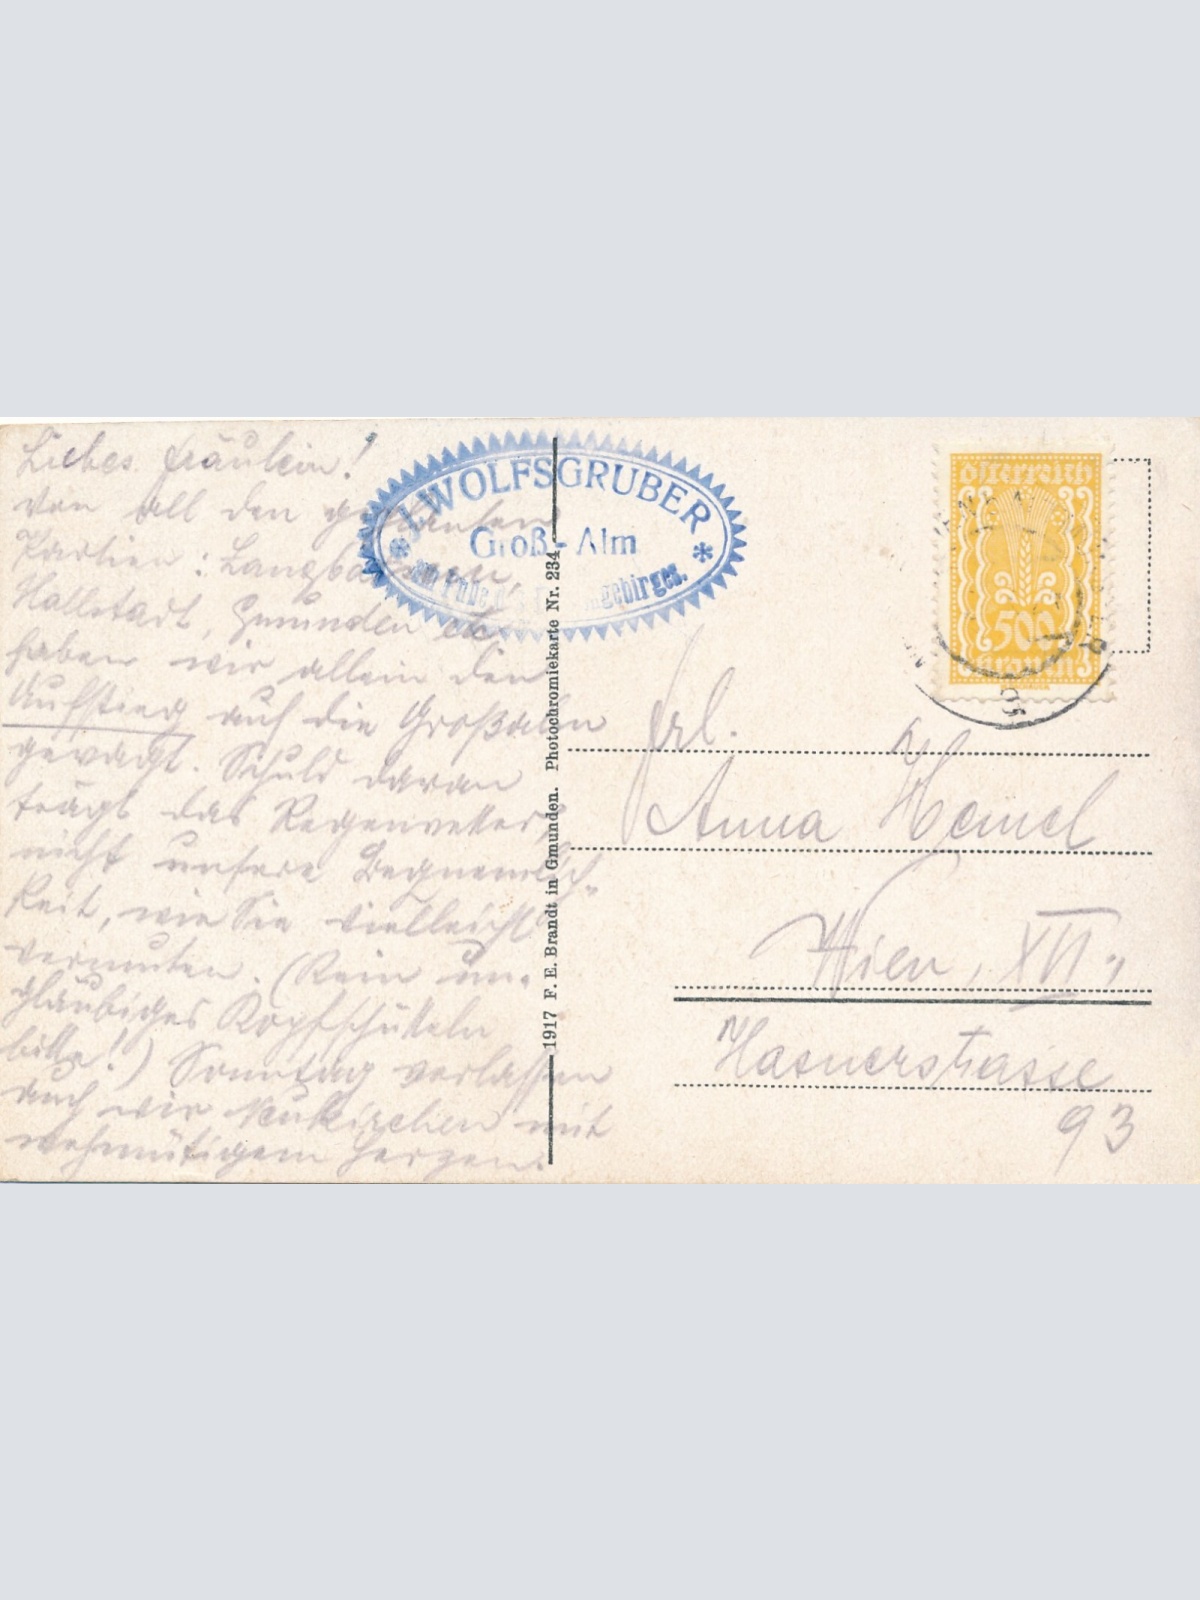 Liebes Fräulein!
von all den geplanten
Partien: Langbathseen,
Hallstadt, Gmunden etc.
haben wir allein den
Aufstieg auf die Großalm
gewagt. Schuld daran
trägt das Regenwetter,
nicht unsere Bequemlich-
keit, wie Sie vielleicht
vermuten. (Kein un-
gläubiges Kopfschütteln
bitte!) Sonntag verlassen
auch wir Neukirchen mit
wehmütigem Herzen.
J. WOLFSGRUBER
Groß-Alm
am Fuße des
gebirges.
1917 F. E. Brandt in Gmunden. Photochromiekarte Nr. 234
Österreich
500
Kronen
Frl.
Anna Hemel
Wien, XVI.,
Hasnerstrasse
93